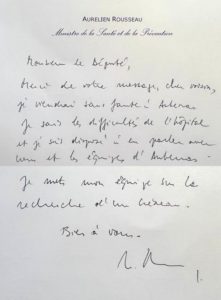 AURELIEN ROUSSEAU
Ministre de la Santé et de la Prévention
Monsieur le Député,
Merci de votre message, cher voisin,
je viendrai sans faute à Aubenas
Je sais les difficultés de l'hôpital
et je suis disposé à en parler avec
vous et les équipes d'Aubenas.
Je mets mon équipe sur la
recherche d'un créneau.
Bien à vous.